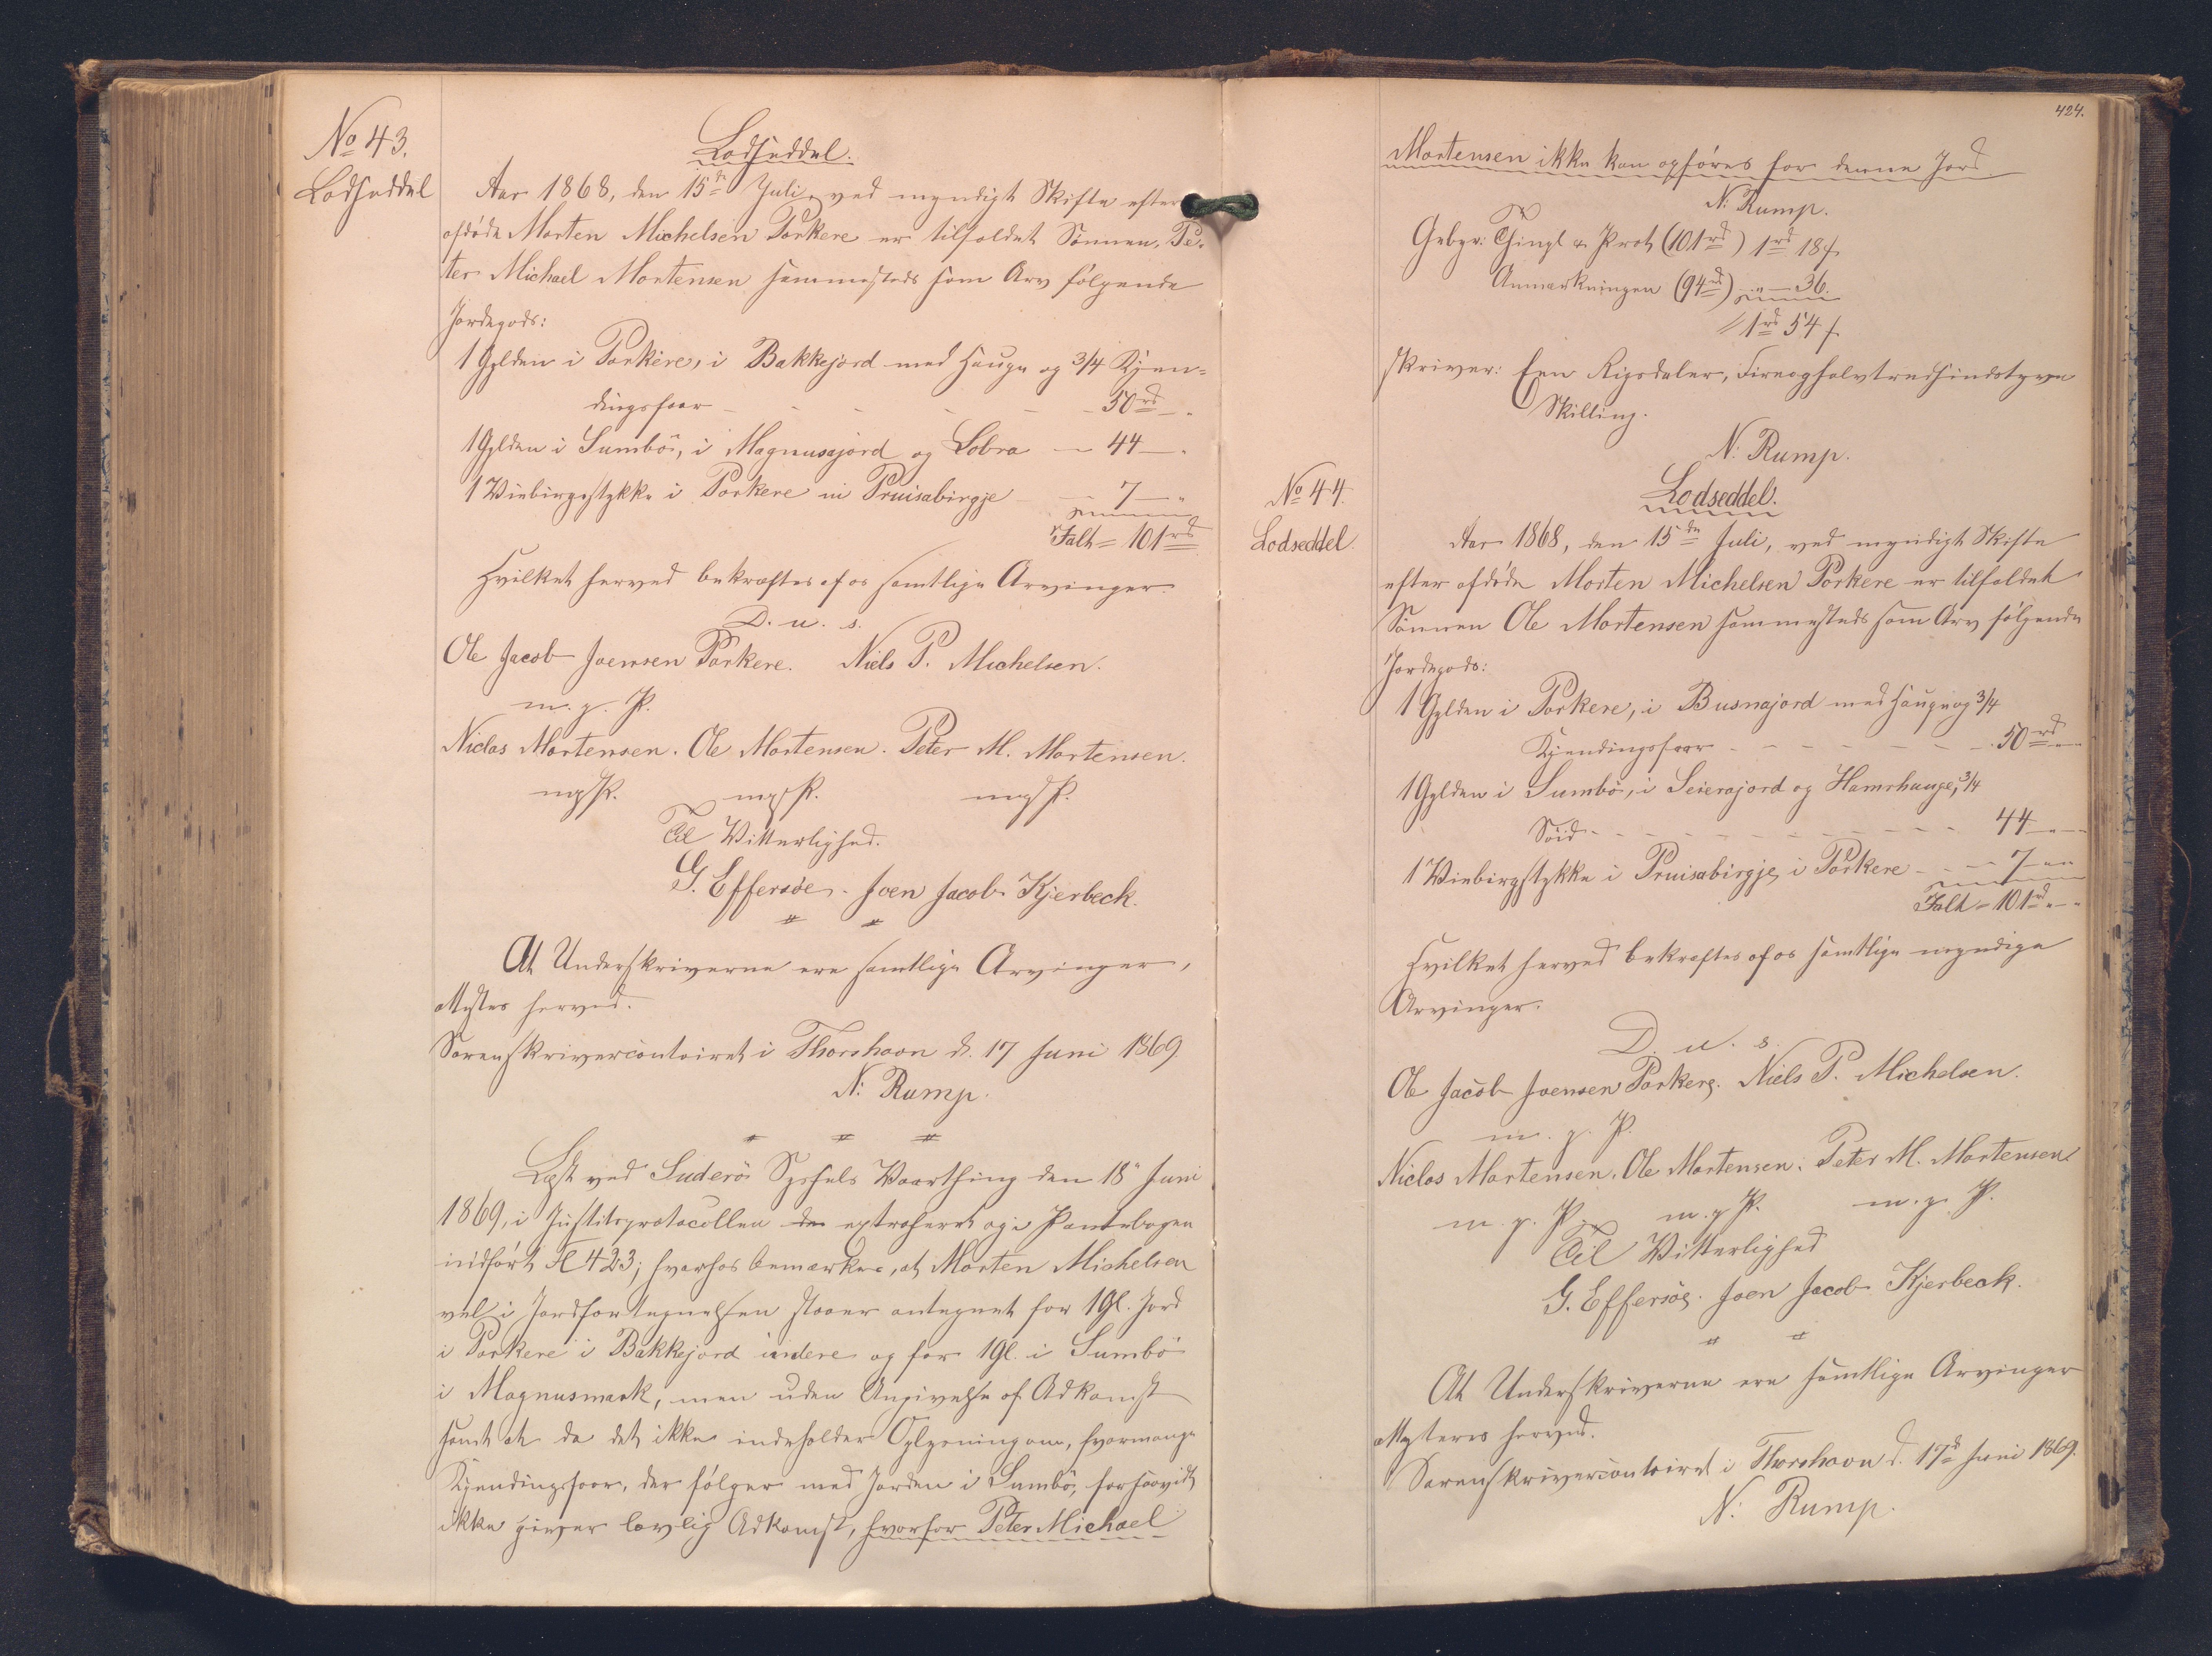 No 43.
Lodseddel
Lodseddel.
Aar 1868, den 15de Juli, ved myndigt Skifte efter
afdøde Morten Michelsen Porkere er tilfaldet Sønnen, Pe-
ter Michael Mortensen sammesteds som Arv følgende
Jordegods:
1 Gylden i Porkere, i Bakkejord med Hauge og 3/4 Kjen-
dingsfaar - - - - - 50rd - "
1 Gylden i Sumbö, i Magnusajord og Lobra - 44 - "
1 Winbirgestykke i Porkere in Pruisabirgje - 7 - "
Ialt = 101rd
Hvilket herved bekræftes af os samtlige Arvinger.
D. u. s.
Ole Jacob Joensen Porkere. Niels P. Michelsen.
m. g. P.
Niclas Mortensen. Ole Mortensen. Peter M. Mortensen.
mgP. mgP. mgP.
Til Vitterlighed.
G. Effersöe. Joen Jacob Kjerbeck.
At Underskriverne ere samtlige Arvinger,
attesteres herved.
Sorenskrivercontoiret i Thorshavn d. 17 Juni 1869.
N: Rump.
Læst ved Suderö Syssels Vaarthing den 18" Juni
1869, i Justitsprotocollen extraheret og i Pantebogen
indført Fol 423; hvorhos bemærkes, at Morten Michelsen
vel i Jordfortegnelsen staaer antegnet for 1 Gl. Jord
i Porkere i Bakkejord indere og for 1 Gl. i Sumbö
i Magnusmark, men uden Angivelse af Adkomst
samt at da det ikke indeholder Oplysning om, hvormange
Kjendingsfaar, der følger med Jorden i Sumbö, forsaavidt
ikke giver lovlig Adkomst, hvorfor Peter Michael
424.
Mortensen ikke kan opføres for denne Jord.
N: Rump.
Gebyr: Thingl & Prot (101rd) 1rd 18 s
Anmærkningen (94rd) " - 36.
1rd 54 s
skriver: Een Rigsdaler, Fireoghalvtredsindstyve
Skilling.
N: Rump.
No 44.
Lodseddel
Lodseddel.
Aar 1868, den 15de Juli, ved myndigt Skifte
efter afdøde Morten Michelsen Porkere er tilfaldet
Sønnen Ole Mortensen sammesteds som Arv følgende
Jordegods:
1 Gylden i Porkere, i Busnajord med Hauge og 3/4
Kjendingsfaar - - - - - - 50rd
1 Gylden i Sumbö, i Seierajord og Hamrhauge, 3/4
Söid - - - - - - - 44 - "
1 Winbirgstykke i Pruisabirgje, i Porkere - - 7 - "
Ialt = 101rd - "
Hvilket herved bekræftes af os samtlige myndige
Arvinger.
D. u. s.
Ole Jacob Joensen Porkere. Niels P. Michelsen.
m. g. P.
Niclas Mortensen. Ole Mortensen. Peter M. Mortensen
m. g. P. m. g P. m. g. P.
Til Vitterlighed
G. Effersöe. Joen Jacob Kjerbeck.
At Underskriverne ere samtlige Arvinger
attesteres herved.
Sorenskrivercontoiret i Thorshavn d. 17d Juni 1869.
N: Rump.